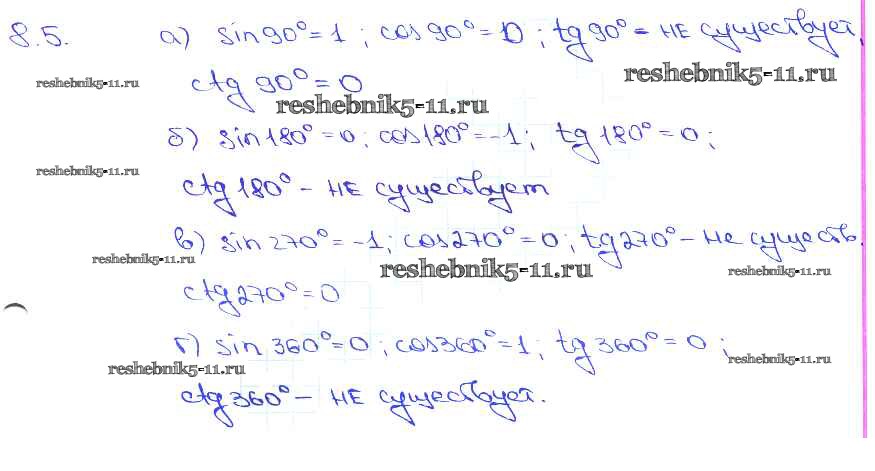 8.5. а) sin 90° = 1 ; cos 90° = 0 ; tg 90° – не существует,
reshebnik5-11.ru ctg 90° = 0 reshebnik5-11.ru
reshebnik5-11.ru
б) sin 180° = 0 ; cos 180° = -1 ; tg 180° = 0 ;
reshebnik5-11.ru
ctg 180° – не существует
в) sin 270° = -1 ; cos 270° = 0 ; tg 270° – не существ.
reshebnik5-11.ru reshebnik5-11.ru reshebnik5-11.ru
ctg 270° = 0
г) sin 360° = 0 ; cos 360° = 1 ; tg 360° = 0 ;
reshebnik5-11.ru reshebnik5-11.ru
ctg 360° – не существует.